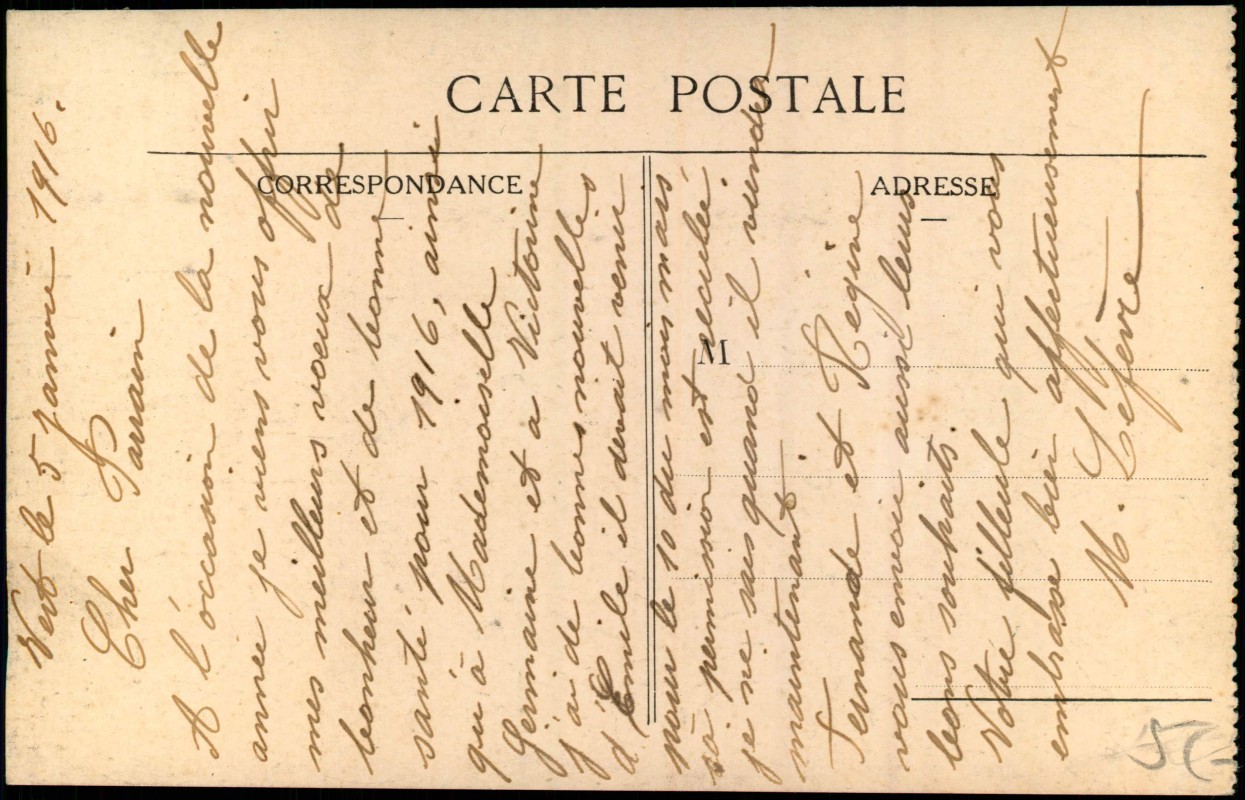 CARTE POSTALE
CORRESPONDANCE
ADRESSE
M
Vert le 5 janvié 1916.
Cher Parrain
A l'occasion de la nouvelle
année je viens vous offrir
mes meilleurs voeux de
bonheur et de bonne
santé pour 1916, ainsi
qu'à Mademoiselle
Germaine et a Victorine
j'ai de bonnes nouvelles
d'Emile il devait venir
pour le 10 du mois mais
sa permission est reculée
je ne sais quand il viendra
maintenant
Fernande et Regine
vous envoie aussi leurs
bons souhaits
Votre filleule qui vous
embrasse bien affectueusement
M. Lefevre
5€-